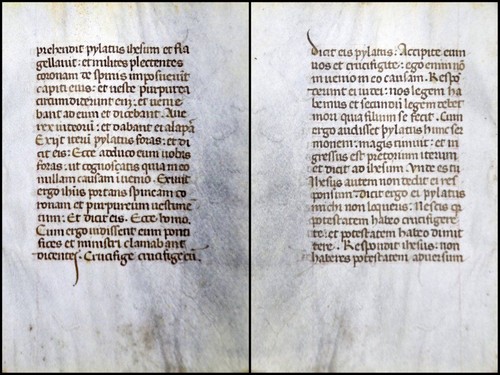 prehendit pylatus ihesum et fla
gellauit: et milites plectentes
coronam de spinis imposuerunt
capiti eius: et ueste purpurea
circumdederunt eum: et uenie
bant ad eum et dicebant. Aue
rex iudeorum: et dabant ei alapas
Exijt iterum pylatus foras: et di
cit eis: Ecce adduco eum uobis
foras: ut cognoscatis quia in eo
nullam causam inuenio. Exiuit
ergo ihesus portans spineam co
ronam et purpureum uestime
tum: Et dicit eis. Ecce homo.
Cum ergo uidissent eum ponti
fices et ministri clamabant
dicentes. Crucifige crucifige eum.
dicit eis pylatus: Accipite eum
uos et crucifigite: ego enim no
inuenio in eo causam. Respo
derunt ei iudei: nos legem ha
bemus et secundum legem debet
mori quia filium dei se fecit. Cum
ergo audisset pylatus hunc ser
monem: magis timuit: et in
gressus est pretorium iterum
et dicit ad ihesum. Unde es tu
Ihesus autem non dedit ei res
ponsum: dicit ergo ei pylatus
michi non loqueris: Nescis quia
potestatem habeo crucifigere
te: et potestatem habeo dimit
tere. Respondit ihesus: non
haberes potestatem aduersum